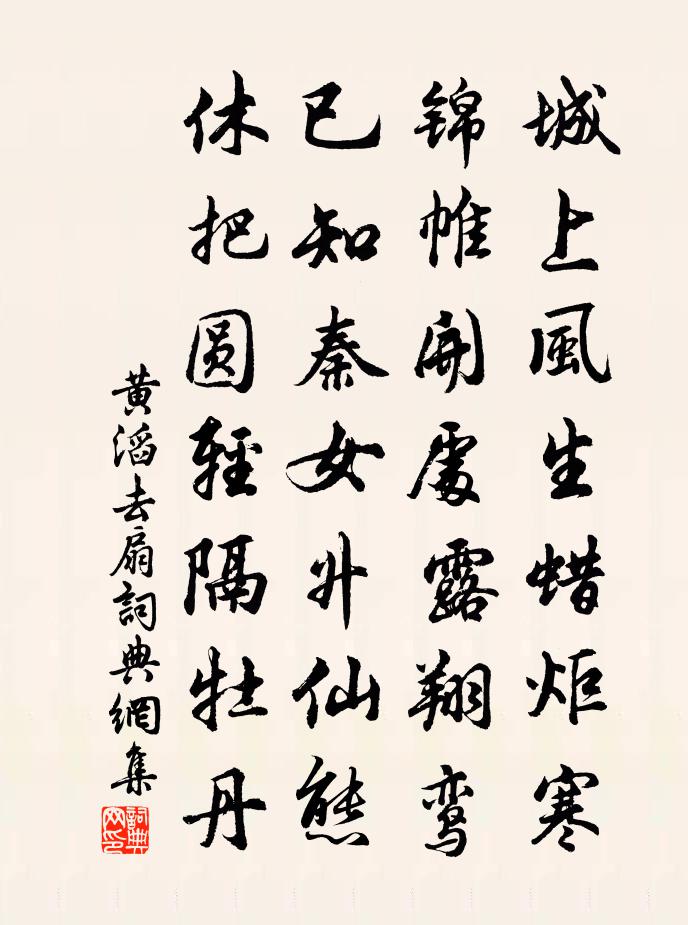 城上風生蜡炬寒
錦帷開處露翔鸾
已知秦女升仙態
休把圆輕隔牡丹
黄滔去扇詞典網集
詞典網印